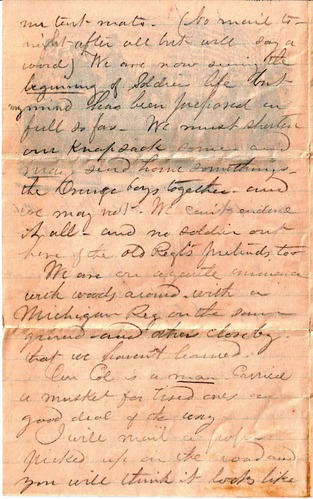 my tent mates. (No mail to-
night after all but will say a
word) We are now seeing the
beginning of Soldier life but
my mind has been prepared in
full so far. We must shorten
our Knapsack some and
may send home something
the Orange boys together and
we may not. We cant endure
it all - and no soldier out
here of the old Regts pretends to
We are on a quite eminence
with woods around with a
Michigan Reg on the same
ground and others close by
that we havent learned.
Our Col is a man. Carried
a musket for tired ones a
good deal of the way
I will mail a paper
picked up on the road and
you will think it looks like